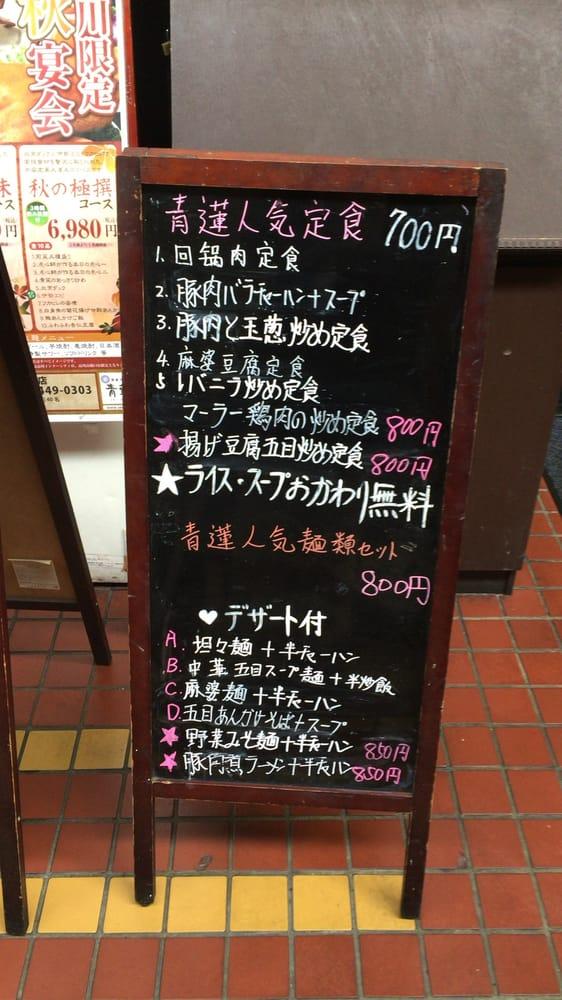 川限定
秋宴会
秋の極撰
コース
6,980円
449-0303
青蓮人気定食 700円
1. 回锅肉定食
2. 豚肉バラチャーハン+スープ
3. 豚肉と玉葱炒め定食
4. 麻婆豆腐定食
5 レバニラ炒め定食
マーラー鶏肉の炒め定食 800円
★揚げ豆腐五目炒め定食 800円
★ライス・スープおかわり無料
青蓮人気麺類セット
800円
♥デザート付
A. 坦々麺+半チャーハン
B. 中華五目スープ麺+半炒飯
C. 麻婆麺+半チャーハン
D. 五目あんかけそば+スープ
★野菜みそ麺+半チャーハン 850円
★豚肉煮ラーメン+半チャーハン 850円